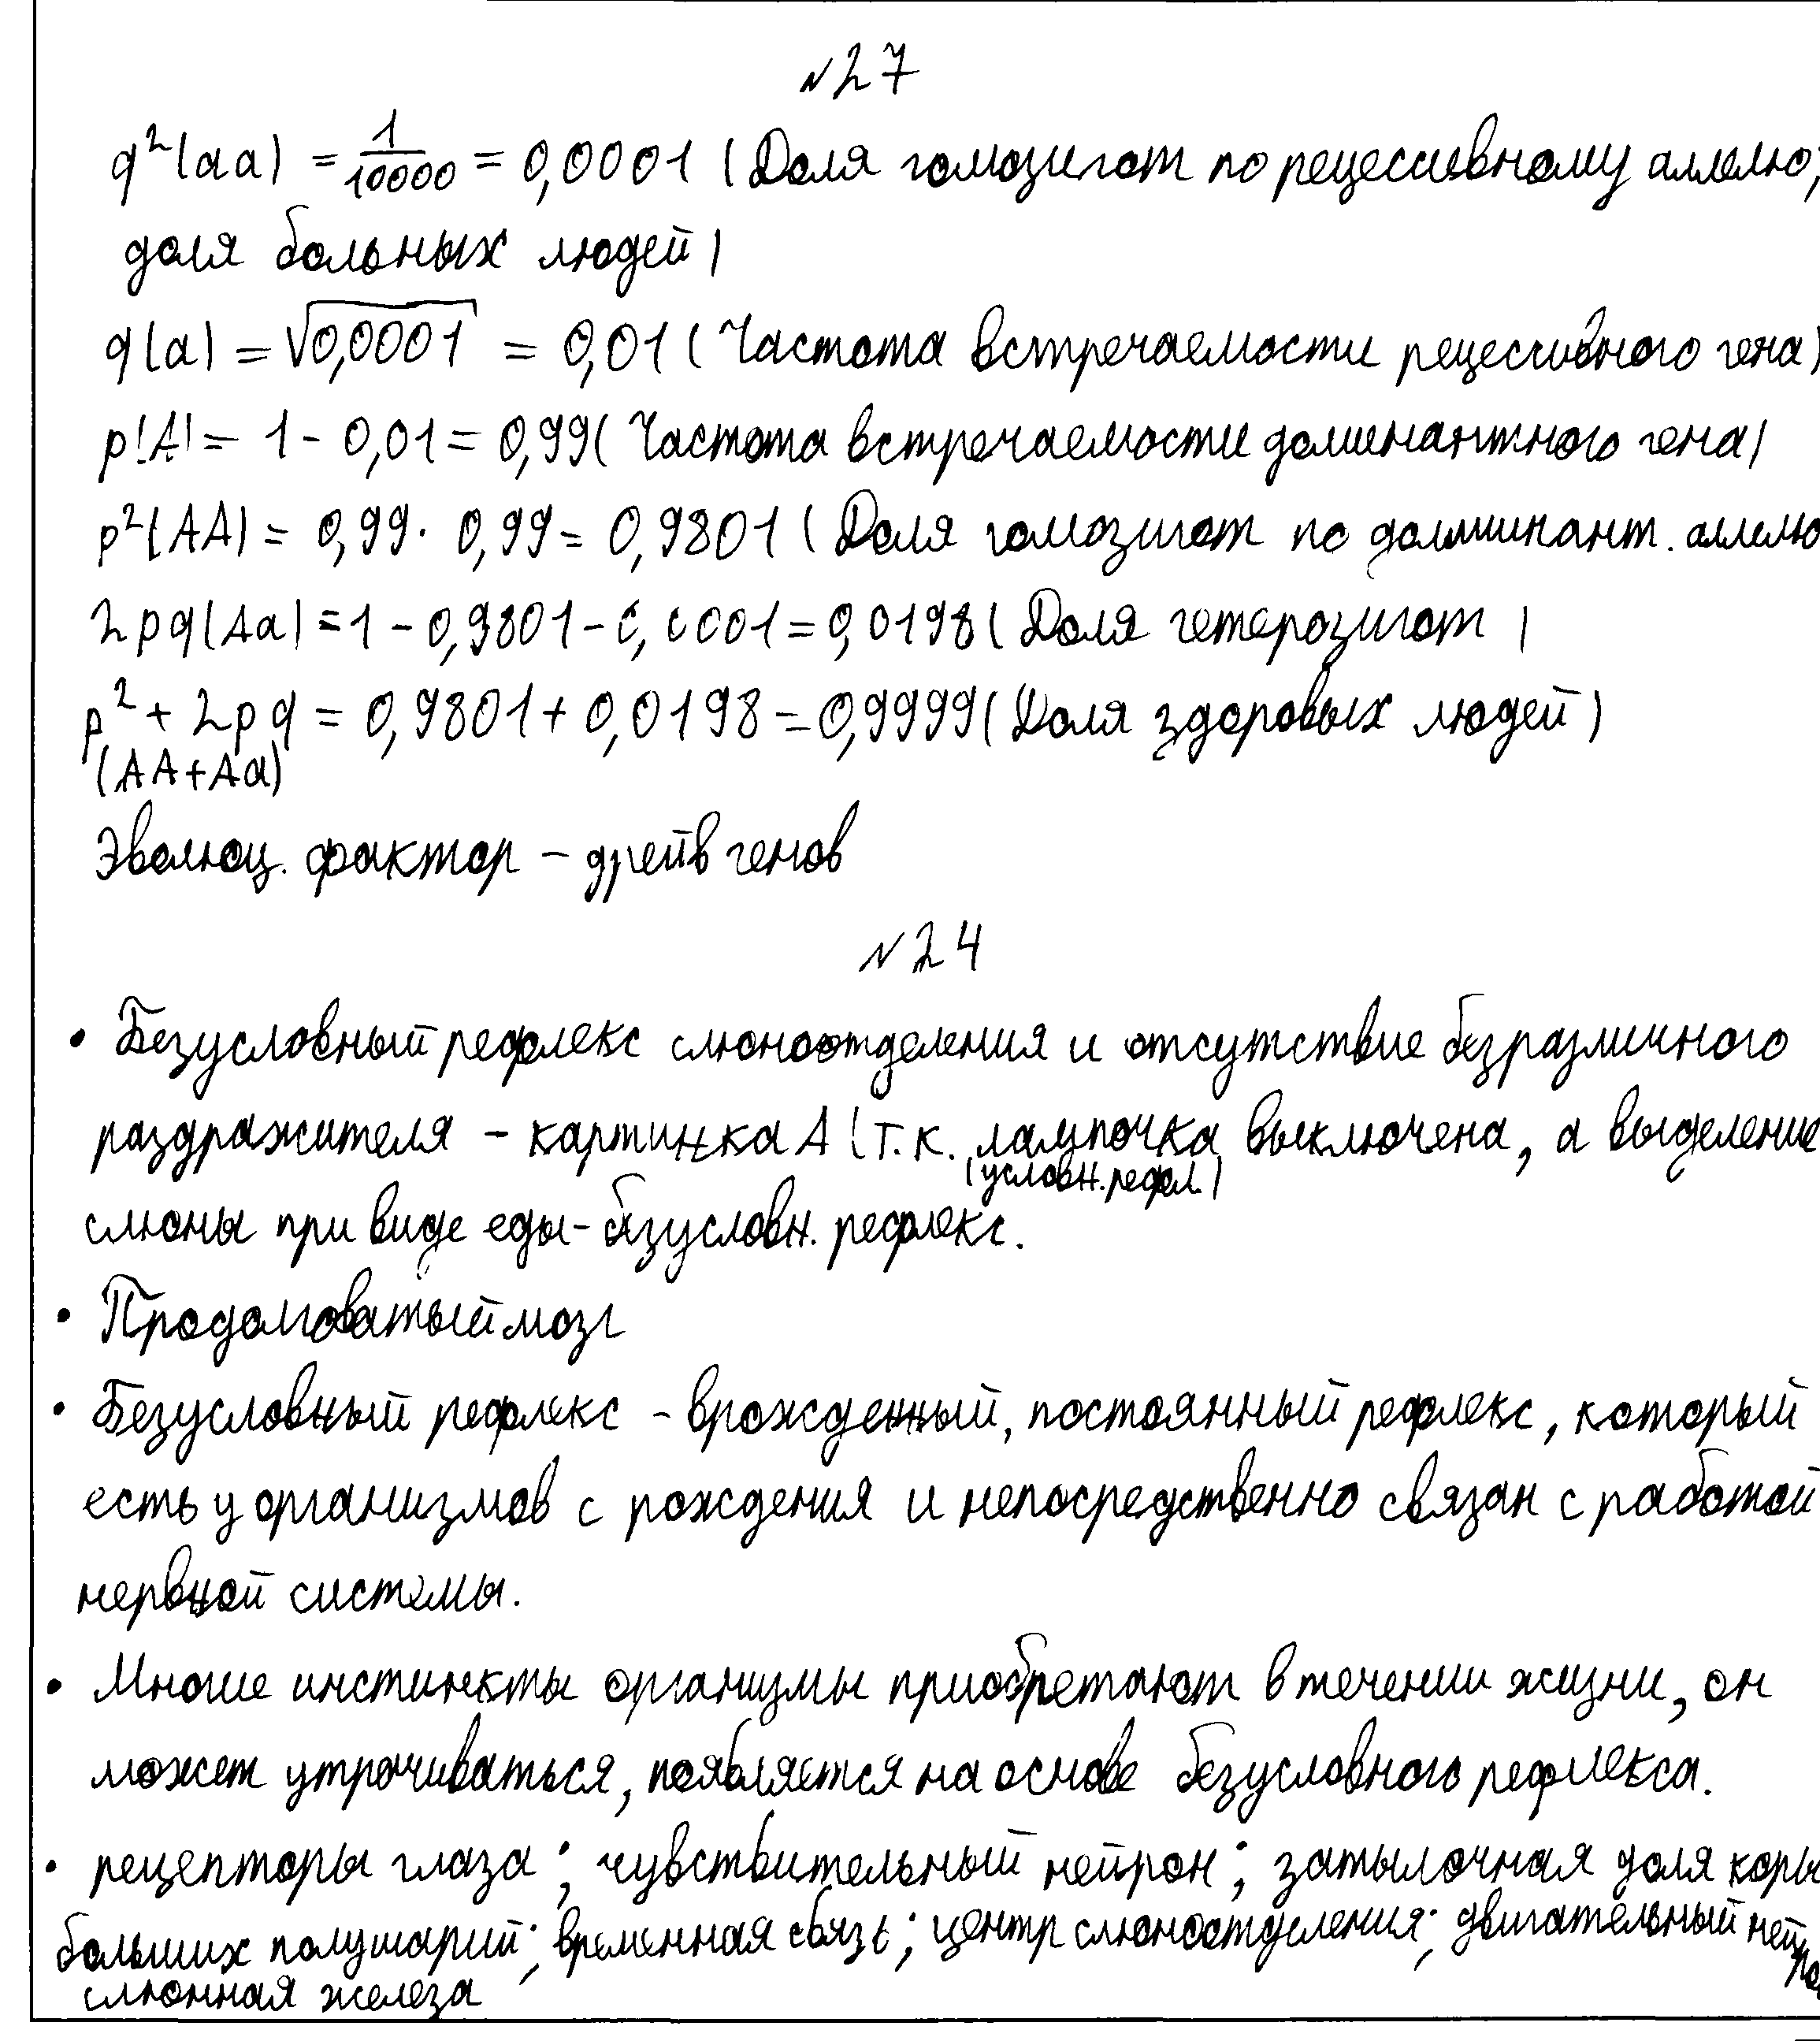 №27
q²(aa) = 1/10000 = 0,0001 (Доля гомозигот по рецессивному аллелю;
доля больных людей)
q(a) = √0,0001 = 0,01 (Частота встречаемости рецессивного гена)
p(A) = 1 - 0,01 = 0,99 (Частота встречаемости доминантного гена)
p²(AA) = 0,99 · 0,99 = 0,9801 (Доля гомозигот по доминант. аллелю
2pq(Aa) = 1 - 0,9801 - 0,0001 = 0,0198 (Доля гетерозигот)
p² + 2pq = 0,9801 + 0,0198 = 0,9999 (Доля здоровых людей)
(AA+Aa)
Эволюц. фактор - дрейв генов
№24
• Безусловный рефлекс слюноотделения и отсутствие безразличного
раздражителя - картинка А (т.к. лампочка выключена, а выделение
(условн. рефл.)
слюны при виде еды - безусловн. рефлекс.
• Продолговатый мозг
• Безусловный рефлекс - врожденный, постоянный рефлекс, который
есть у организмов с рождения и непосредственно связан с работой
нервной системы.
• Многие инстинкты организмы приобретают в течении жизни, он
может утрачиваться, появляется на основе безусловного рефлекса.
• рецепторы глаза; чувствительный нейрон; затылочная доля коры
больших полушарий; временная связь; центр слюноотделения; двигательный нейрон
слюнная железа